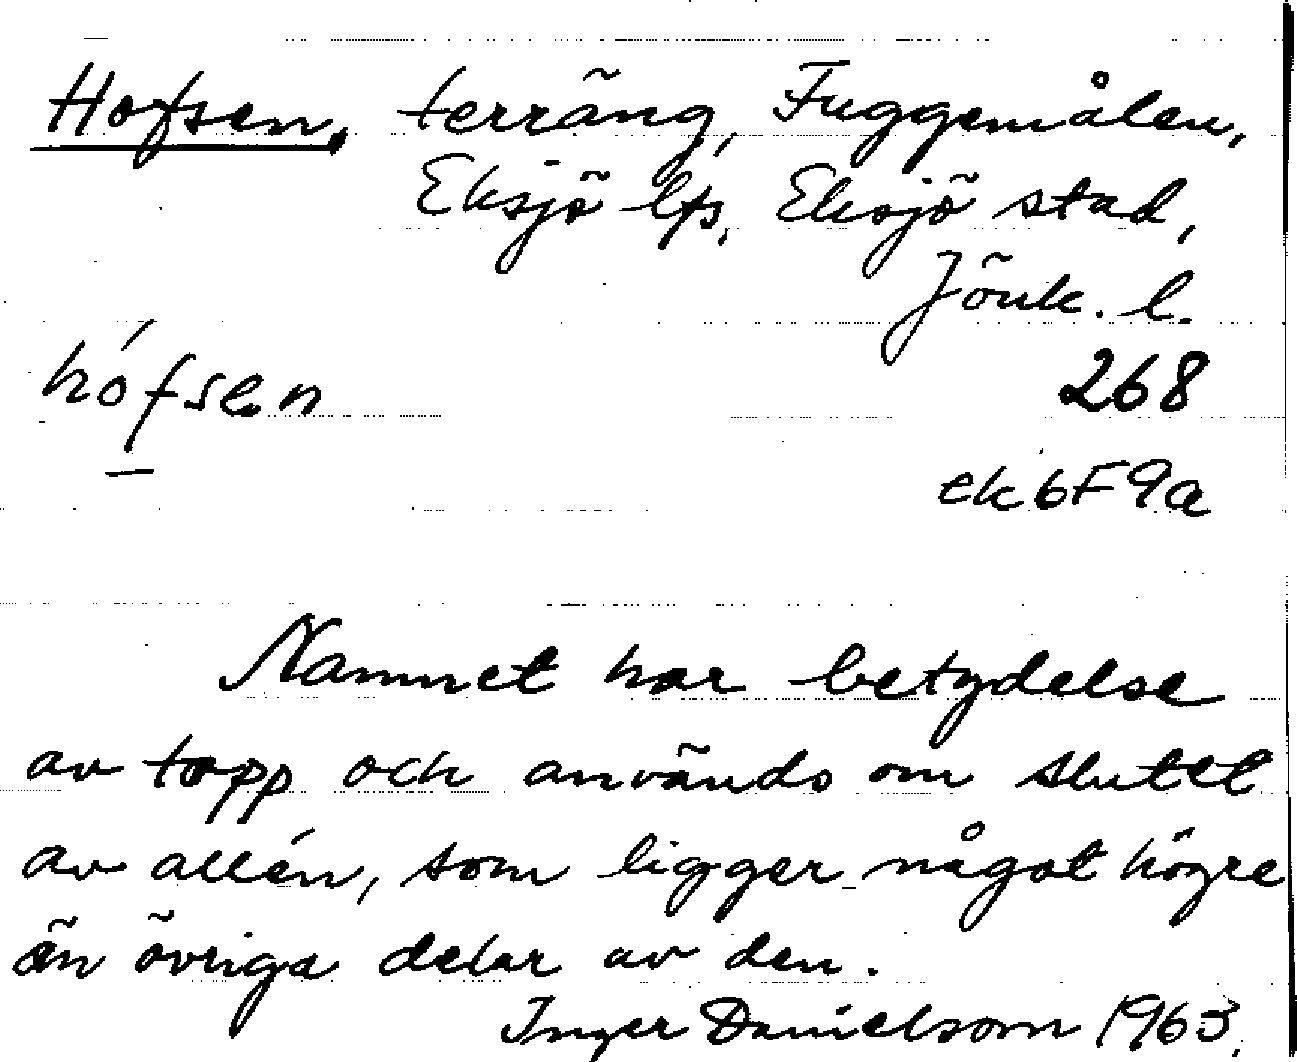 Hofsen, terräng, Fuggemålen,
Eksjö lfs, Eksjö stad,
Jönk. l.
hófsen 268
ek 6F9a
Namnet har betydelse
av topp och används om slutet
av allén, som ligger något högre
än övriga delar av den.
Inger Danielsom 1963.